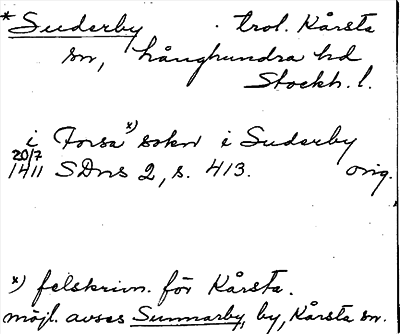 *Suderby . trol. Kårsta
sn, Långhundra hd
Stockh. l.
i Forsa*) sokn i Suderby
20/7 1411 SDns 2, s. 413. orig.
*) felskrivn. för Kårsta.
möjl. avses Summarby, by, Kårsta sn.